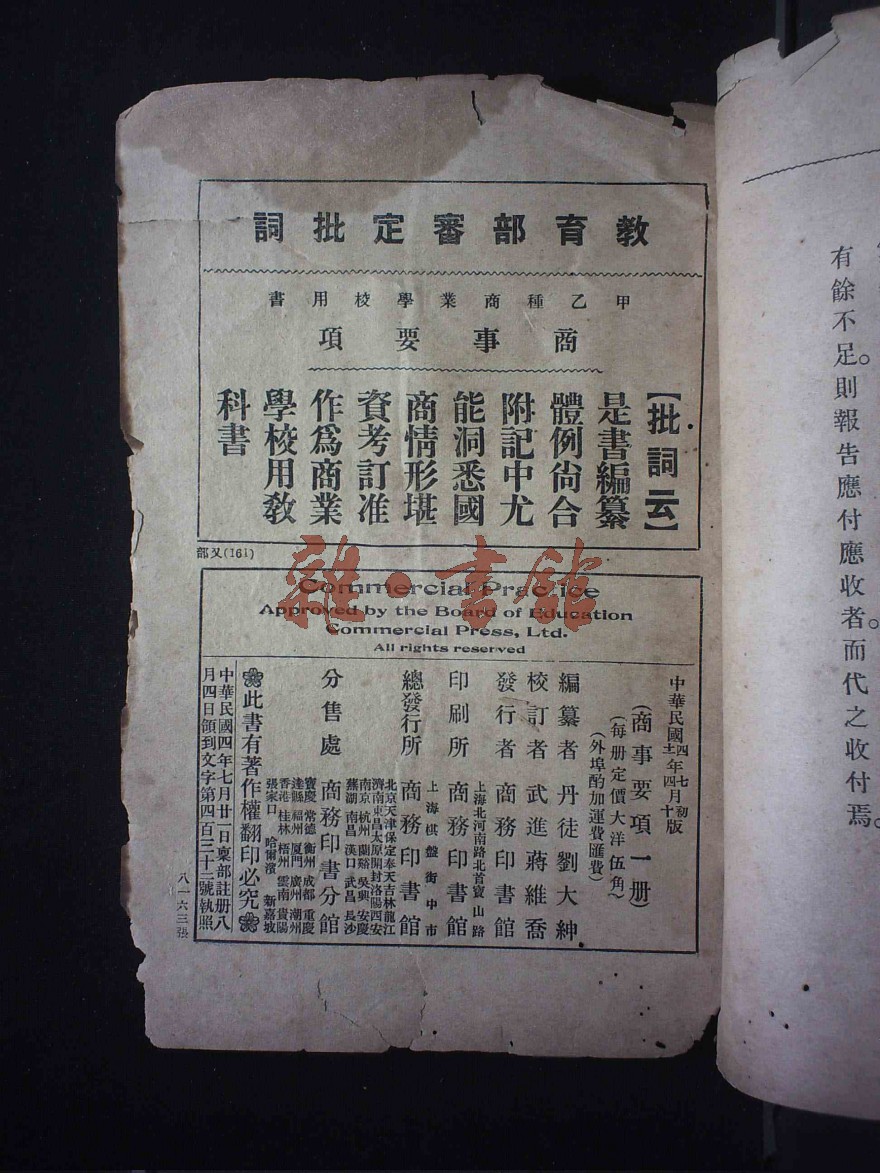 教育部審定批詞
甲乙種商業學校用書
商事要項
【批詞云】
是書編纂
體例尙合
附記中尤
能洞悉國
商情形堪
資考訂准
作爲商業
學校用敎
科書
部又(161)
Commercial Practice
Approved by the Board of Education
Commercial Press, Ltd.
All rights reserved
中華民國四年七月初版
十一年四月十版
(商事要項一册)
(每册定價大洋伍角)
(外埠酌加運費匯費)
編纂者 丹徒劉大紳
校訂者 武進蔣維喬
發行者 商務印書館
上海北河南路北首寶山路
印刷所 商務印書館
上海棋盤街中市
總發行所 商務印書館
北京天津保定奉天吉林龍江
濟南東昌太原開封洛陽西安
南京 杭州 蘭谿 吳興 安慶
蕪湖 南昌 漢口 武昌 長沙
分售處 商務印書分館
寶慶 常德 衡州 成都 重慶
達縣 福州 厦門 廣州 潮州
香港 桂林 梧州 雲南 貴陽
張家口 哈爾濱 新嘉坡
此書有著作權翻印必究
中華民國四年七月廿二日稟部註册八
月四日領到文字第四百三十二號執照
八一六三張
有餘不足。則報告應付應收者。而代之收付焉。
雜·書館